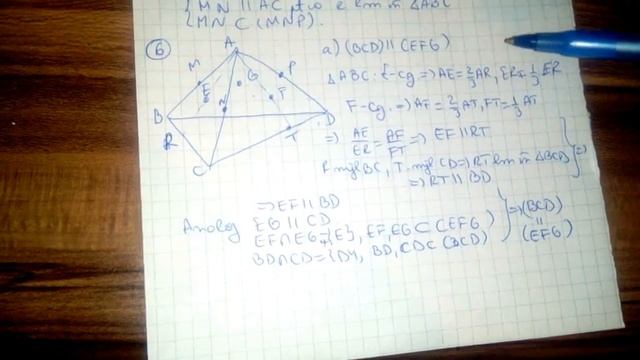 { MN ∥ AC, pt că e lm în ΔABC
{ MN ⊂ (MNP).
⑥
A
M
P
G
E
F
N
T
B
D
R
T
C
a) (BCD) ∥ (EFG)
ΔABC: E-cg ⇒ AE=2/3 AR, ER=1/3 ER
F-cg. ⇒ AF=2/3 AT, FT=1/3 AT
⇒ AE/ER = AF/FT ⇒ EF ∥ RT
R mijl BC, T mijl CD ⇒ RT lm în ΔBCD
⇒ RT ∥ BD
⇒ EF ∥ BD
Analog EG ∥ CD
EF∩EG={E}, EF, EG ⊂ (EFG)
BD∩CD={D}, BD, CD ⊂ (BCD)
⇒ (BCD)
∥
(EFG)